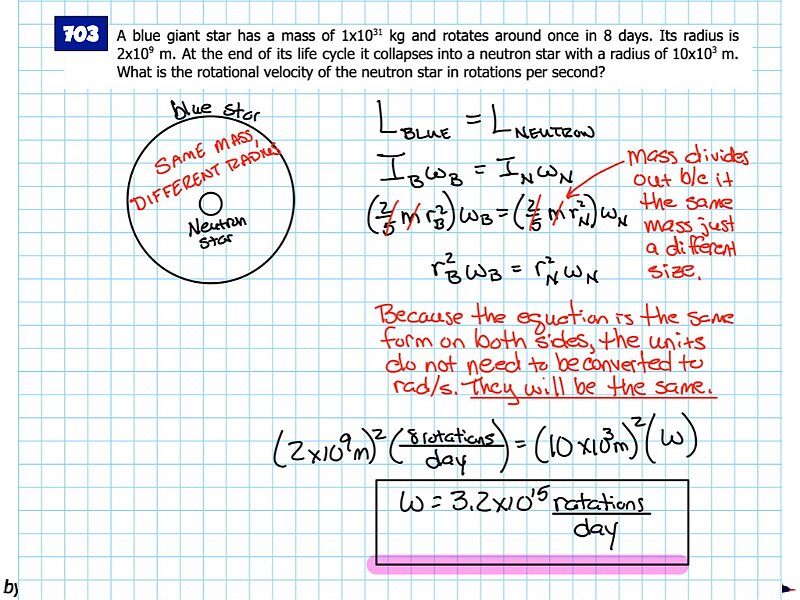 703
A blue giant star has a mass of 1x10³¹ kg and rotates around once in 8 days. Its radius is
2x10⁹ m. At the end of its life cycle it collapses into a neutron star with a radius of 10x10³ m.
What is the rotational velocity of the neutron star in rotations per second?
blue star
SAME MASS,
DIFFERENT RADIUS
Neutron
star
L_BLUE = L_NEUTRON
I_B ω_B = I_N ω_N
(2/5 m r_B²) ω_B = (2/5 m r_N²) ω_N
r_B² ω_B = r_N² ω_N
mass divides
out b/c it
the same
mass just
a different
size.
Because the equation is the same
form on both sides, the units
do not need to be converted to
rad/s. They will be the same.
(2x10⁹m)² (8 rotations/day) = (10x10³m)² (ω)
ω = 3.2x10¹⁵ rotations/day
by